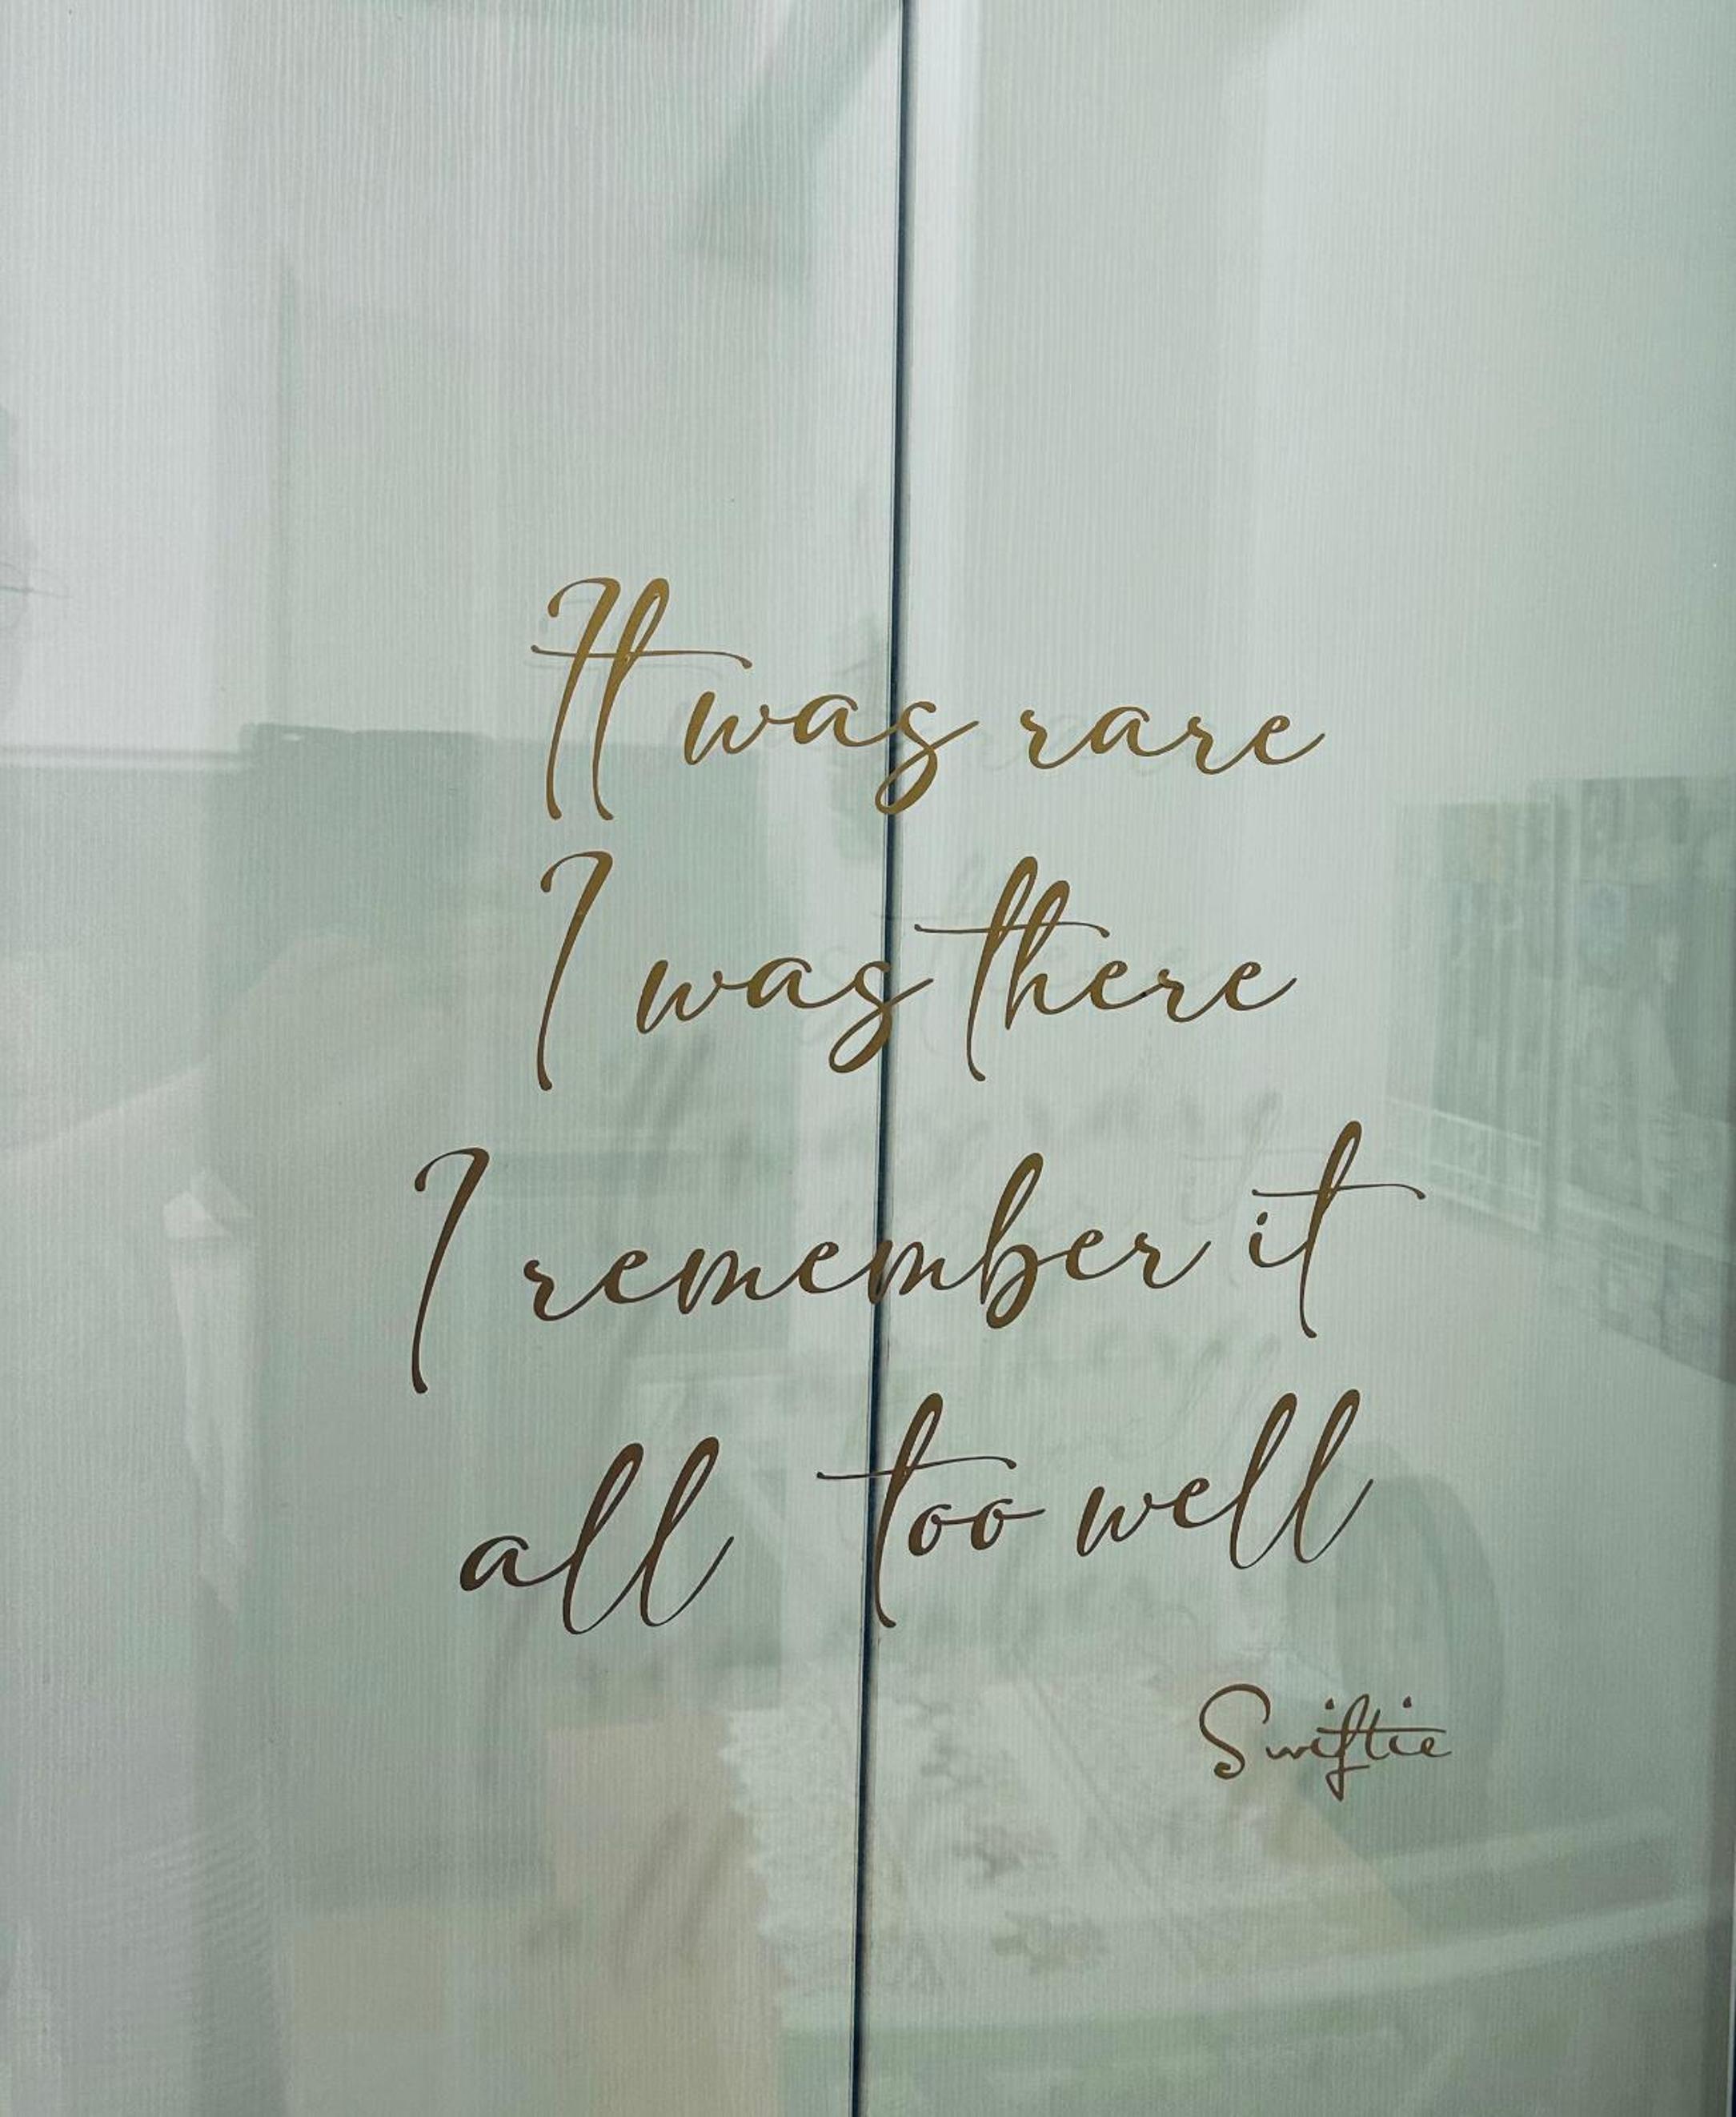 It was rare
I was there
I remember it
all too well
Swiftie